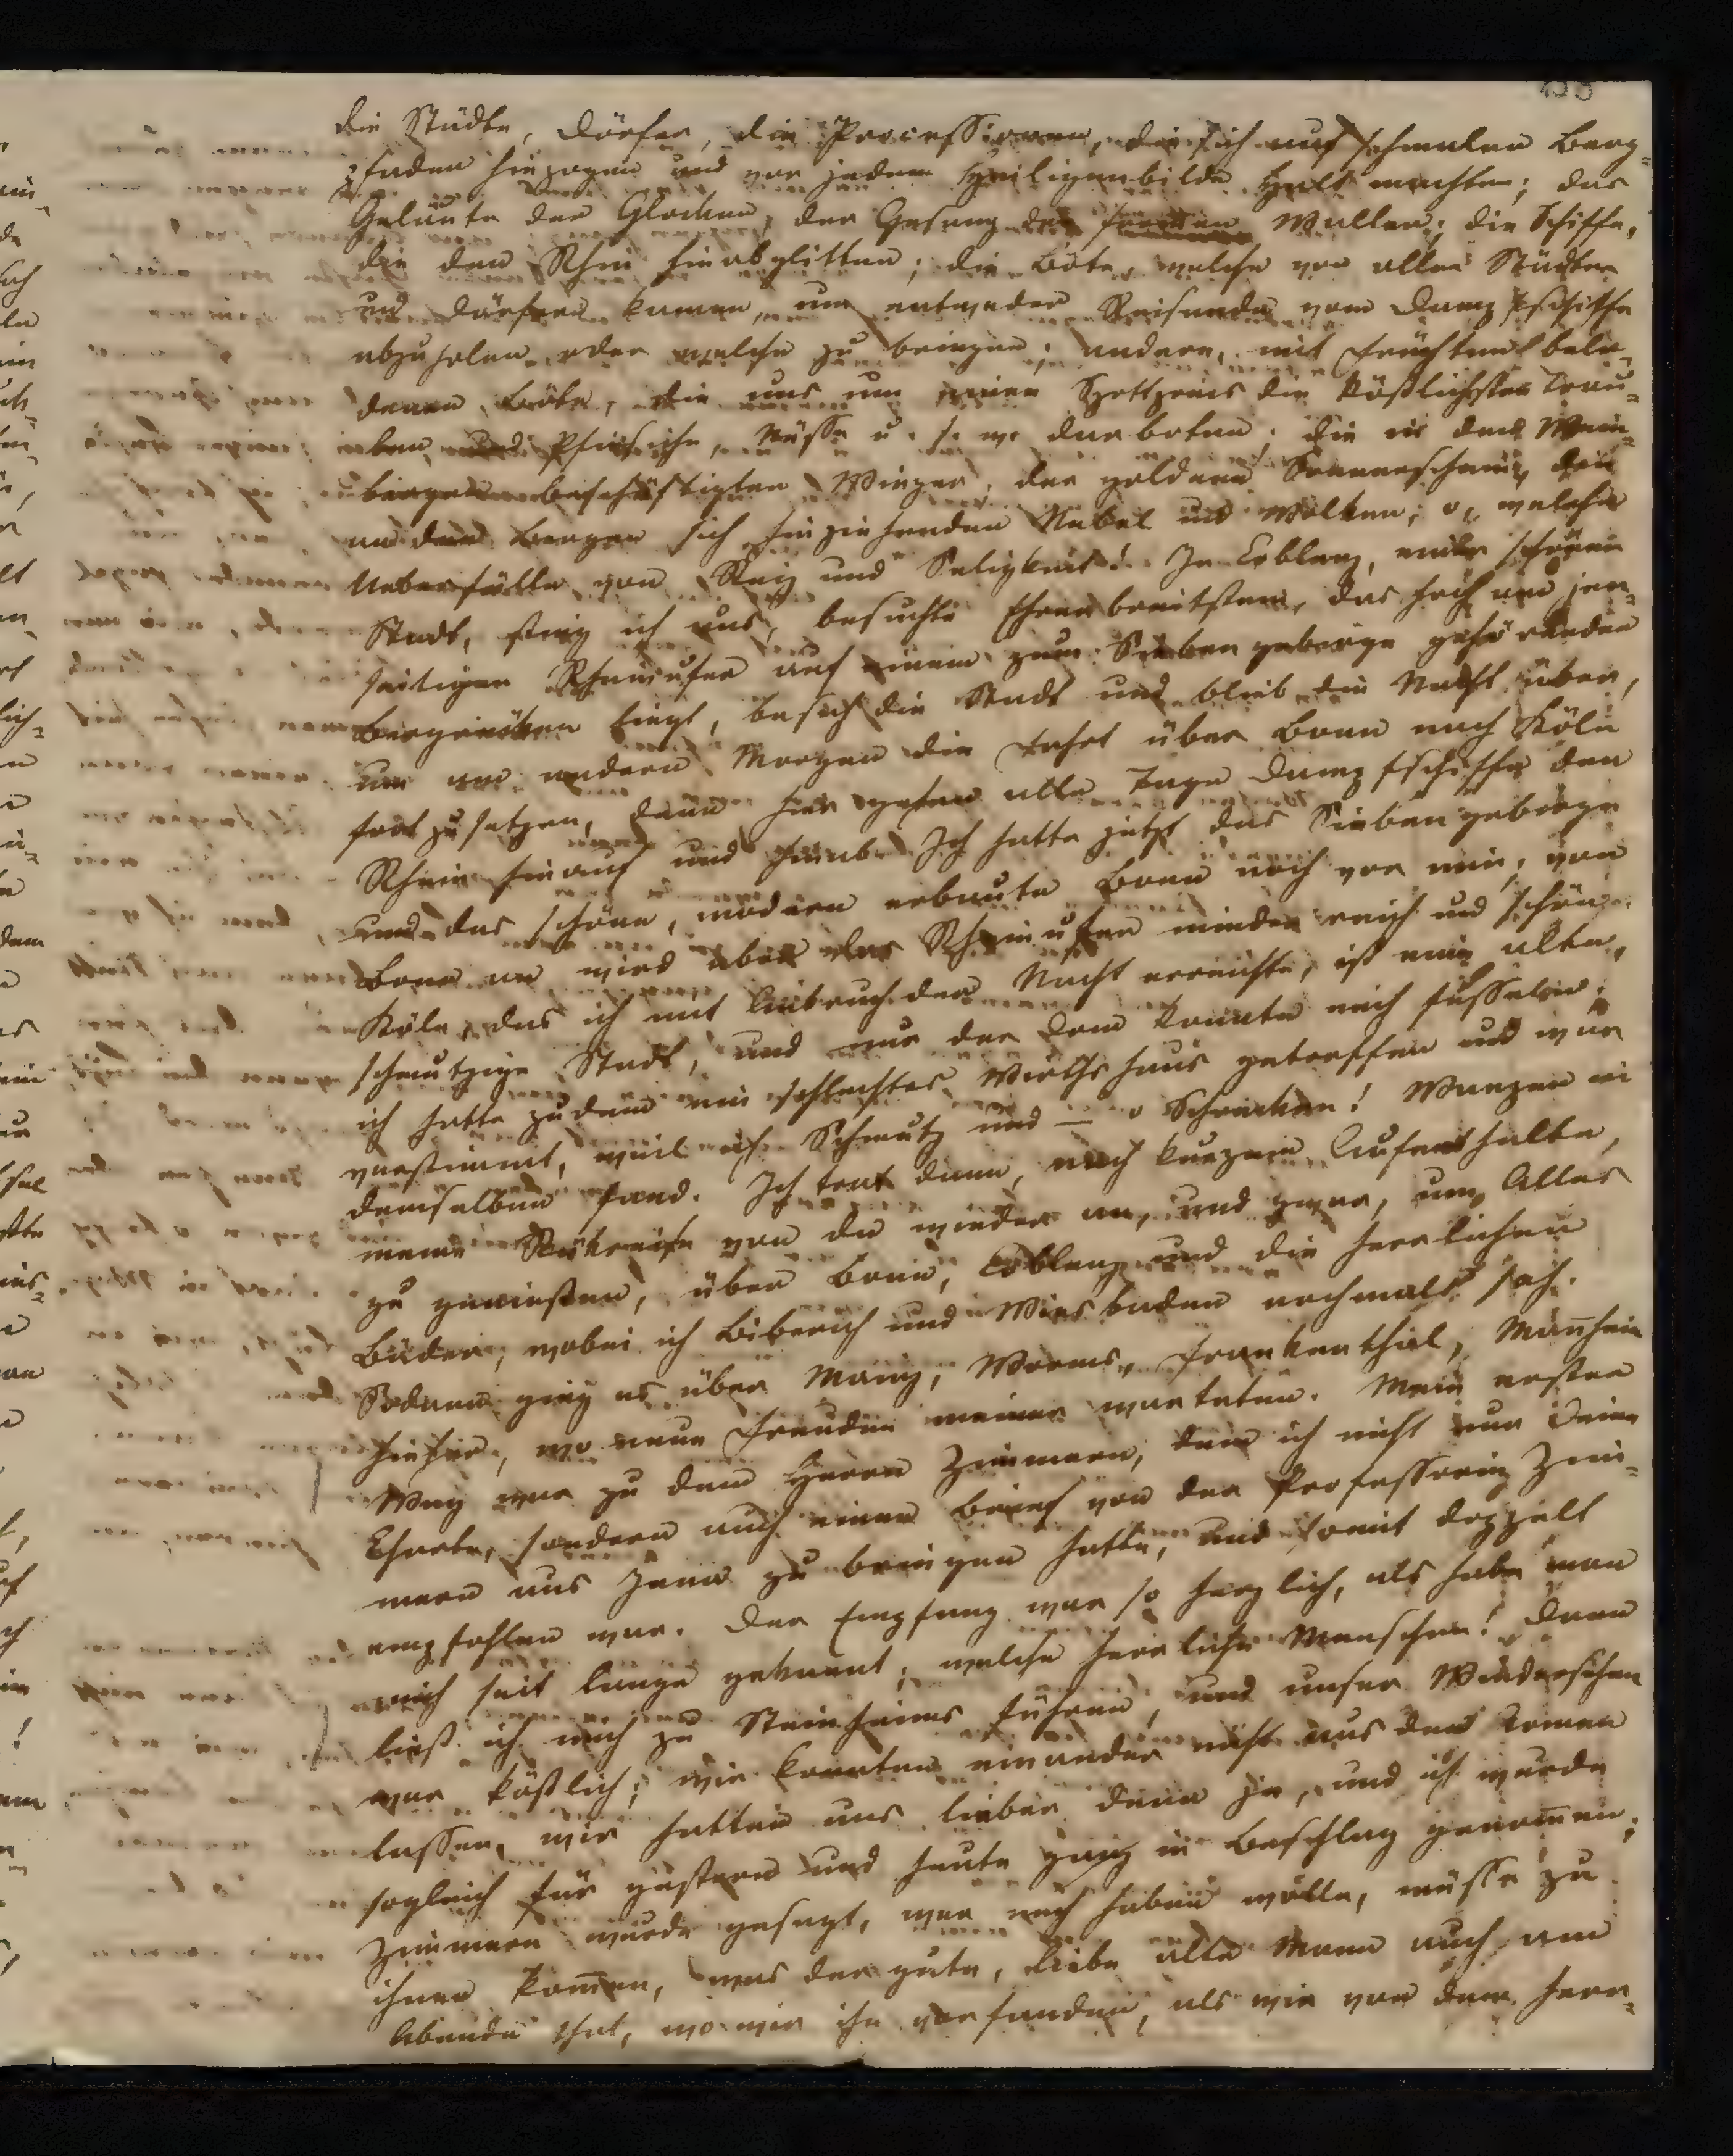 138
die Städte, Dörfer, die Processionen, die sich auf schmalen Berg-
pfaden hinzogen und vor jedem Heiligenbilde Halt machten; das
Geläute der Glocken, der Gesang der frommen Waller; die Schiffe,
die den Rhein hinabglitten; die Böte, welche von allen Städten
und Dörfern kamen, um entweder Reisende vom Dampfschiffe
abzuholen oder welche zu bringen; andere, mit Früchten bela-
denen Böte, die uns um einen Spottpreis die köstlichsten Trau-
ben und Pfirsiche, Nüsse u. s. w. darboten; die in den Wein-
bergen beschäftigten Winzer, der goldene Sonnenschein, die
an den Bergen sich hinziehenden Nebel und Wolken; o, welche
Ueberfülle von Reiz und Seligkeit! In Coblenz, einer schönen
Stadt, stieg ich aus, besuchte Ehrenbreitstein, das hoch am jen-
seitigen Rheinufer auf einem zum Siebengebirge gehörenden
Bergrücken liegt, besah die Stadt und blieb die Nacht über,
um am andern Morgen die Fahrt über Bonn nach Köln
fortzusetzen, denn hier gehen alle Tage Dampfschiffe den
Rhein hinauf und hinab. Ich hatte jetzt das Siebengebirge
und das schöne, modern erbaute Bonn noch vor mir; von
Bonn an wird aber das Rheinufer minder reich und schön.
Köln, das ich mit Einbruch der Nacht erreichte, ist eine alte,
schmutzige Stadt, und nur der Dom konnte mich fesseln;
ich hatte zudem ein schlechtes Wirthshaus getroffen und war
verstimmt, weil ich Schmutz und — o Schrecken! Wanzen in
demselben fand. Ich trat dann, nach kurzem Aufenthalte,
meine Rückreise von da wieder an, und zwar, um Alles
zu genießen, über Bonn, Coblenz und die herrlichen
Bäder, wobei ich Biberich und Wiesbaden nochmals sah.
Sodann ging es über Mainz, Worms, Frankenthal, Man̄heim
hieher, wo neue Freuden meiner warteten. Mein erster
Weg war zu dem Herrn Zimmern, dem ich nicht nur Deine
Charte, sondern auch einen Brief von der Professorin Zim-
mern aus Jena zu bringen hatte, und somit doppelt
empfohlen war. Der Empfang war so herzlich, als habe man
mich seit lange gekannt; welche herrliche Menschen! Dann
ließ ich mich zu Steinheims führen, und unser Wiedersehen
war köstlich; wir konnten einander nicht aus den Armen
lassen, wir hatten uns lieber denn je, und ich wurde
sogleich für gestern und heute ganz in Beschlag genom̄en;
Zimmern wurde gesagt, wer mich haben wolle, müsse zu
ihnen kom̄en, was der gute, liebe alte Mann auch am
Abende that, wo wir ihn vorfanden, als wir von dem herr-